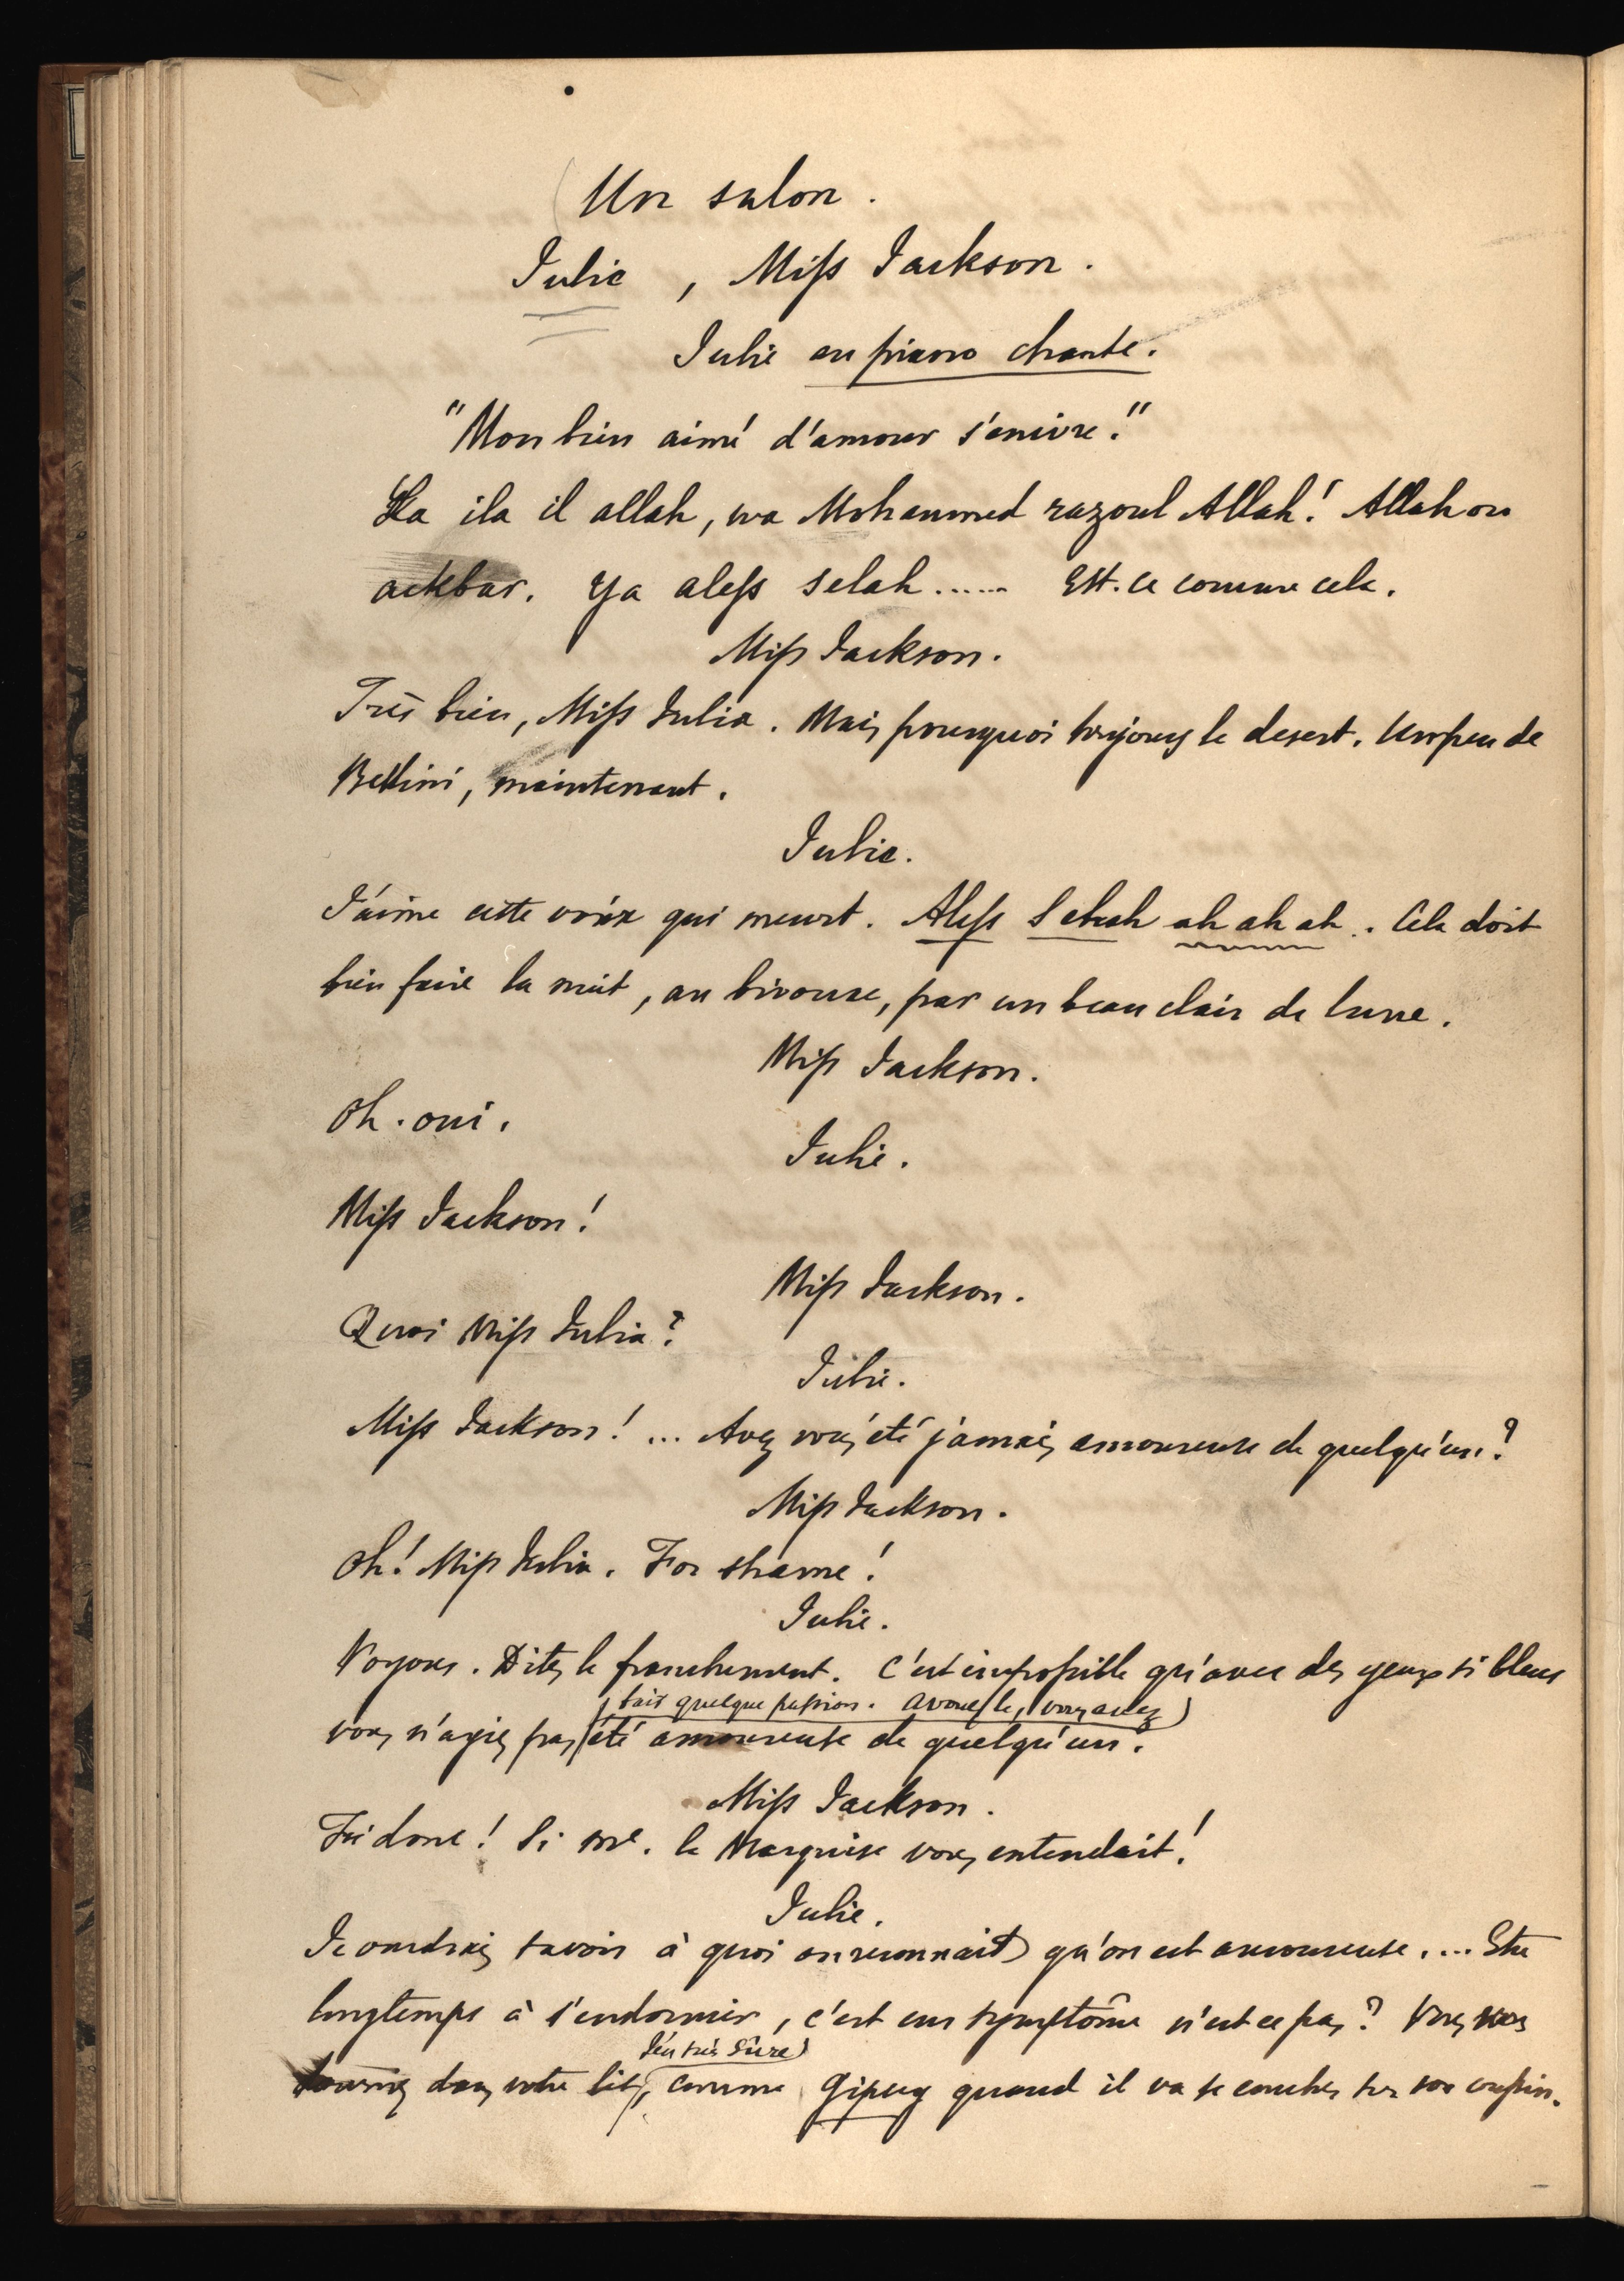 Un salon.
Julie, Miss Jackson.
Julie au piano chante.
"Mon bien aimé d'amour s'enivre."
La ila il allah, wa Mohammed razoul Allah! Allah ou
ackbar. Ya aless selah...... Est-ce comme cela.
Miss Jackson.
Très bien, Miss Julia. Mais pourquoi toujours le desert. Un peu de
Bellini, maintenant.
Julie.
J'aime cette voix qui meurt. Aless Selah ah ah ah.. Cela doit
bien faire la nuit, au bivouac, par un beau clair de lune.
Miss Jackson.
Oh. oui.
Julie.
Miss Jackson!
Miss Jackson.
Quoi Miss Julia?
Julie.
Miss Jackson! ... Avez vous été jamais amoureuse de quelqu'un?
Miss Jackson.
Oh! Miss Julia. For shame!
Julie.
Voyons. Dites le franchement. C'est impossible qu'avec des yeux si bleus
fait quelque passion. avouez le, vous avez
vous n'ayez pas été amoureuse de quelqu'un.
Miss Jackson.
Fi donc! Si Me. la Marquise vous entendait!
Julie.
Je voudrais savoir à quoi on reconnait qu'on est amoureuse.... Etre
longtemps à s'endormir, c'est un symptôme n'est ce pas? Vous vous
j'en suis sûre
tournez dans votre lit, comme Gipsy quand il va se coucher sur son coussin.